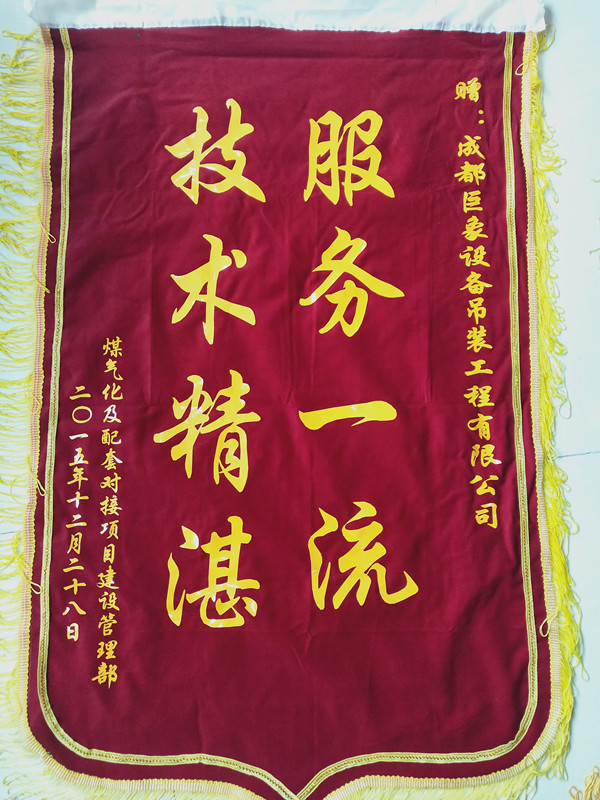 赠：成都巨象设备吊装工程有限公司
服务一流
技术精湛
煤气化及配套对接项目建设管理部
二〇一五年十二月二十八日